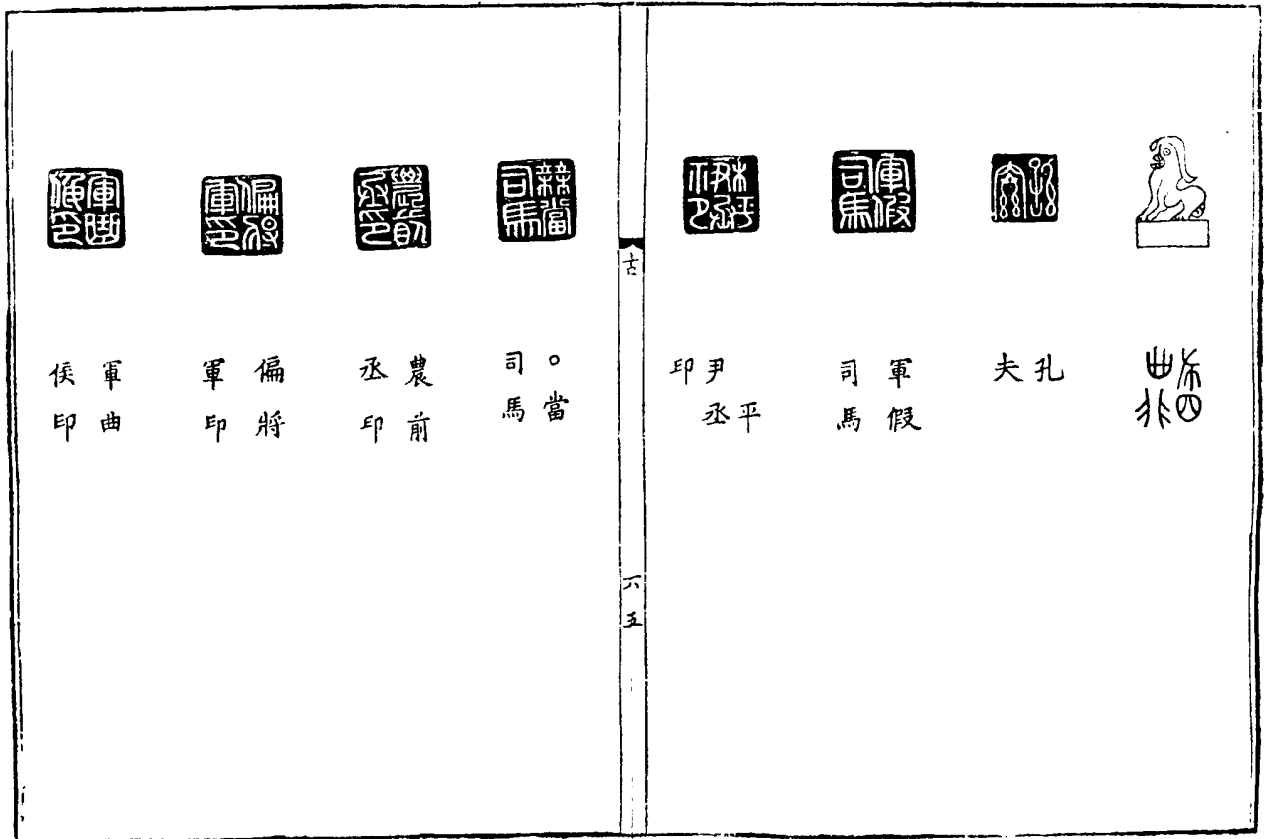 孔
夫
軍假
司馬
平
尹丞
印
古
六五
○當
司馬
農前
丞印
偏將
軍印
軍曲
侯印